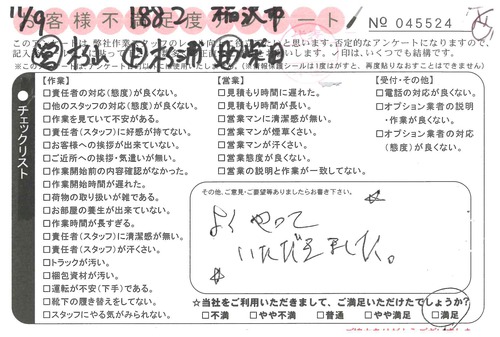 11/9 1882 稲沢市
お客様不満足度チェックシート
№ 045524
チェックリスト
【作業】
□責任者の対応(態度)が良くない。
□他のスタッフの対応(態度)が良くない。
□作業を見ていて不安がある。
□責任者(スタッフ)に好感が持てない。
□お客様への挨拶が出来ていない。
□ご近所への挨拶・気遣いが無い。
□作業開始前の内容確認がなかった。
□作業開始時間が遅れた。
□荷物の取り扱いが雑である。
□お部屋の養生が出来ていない。
□作業時間が長すぎる。
□責任者(スタッフ)に清潔感が無い。
□責任者(スタッフ)が汗くさい。
□トラックが汚い。
□梱包資材が汚い。
□運転が不安(下手)である。
□靴下の履き替えをしてない。
□スタッフにやる気がみられない。
【営業】
□見積もり時間に遅れた。
□見積もり時間が長い。
□営業マンに清潔感が無い。
□営業マンが煙草くさい。
□営業マンが汗くさい。
□営業態度が良くない。
□営業の説明と作業が一致してない。
【受付・その他】
□電話の対応が良くない。
□オプション業者の説明
・作業が良くない。
□オプション業者の対応
(態度)が良くない。
その他、ご意見・ご要望等ありましたらお書き下さい。
よくやって
いただきました。
☆当社をご利用いただきまして、ご満足いただけたでしょうか?
□不満 □やや不満 □普通 □やや満足 □満足